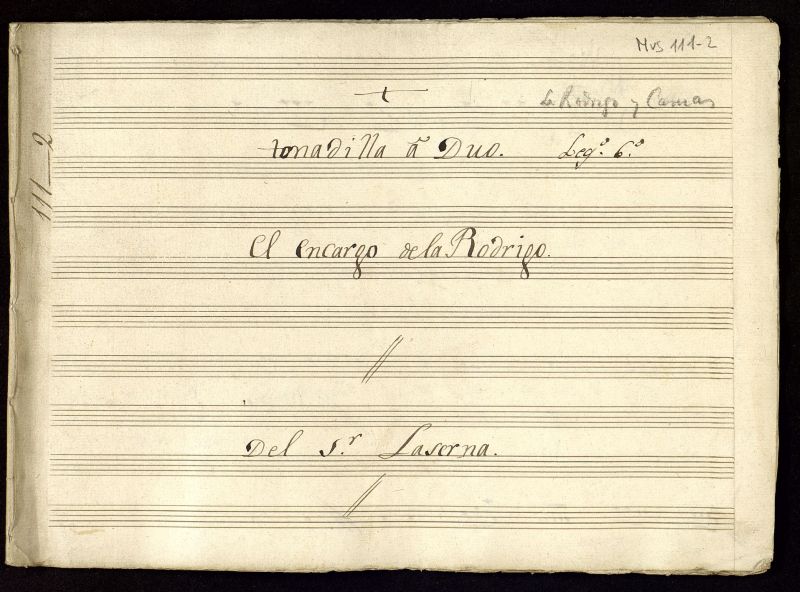 Mus 111-2
La Rodrigo y
tonadilla â Duo. Legº. 6º
El encargo de la Rodrigo.
Del S.r Laserna.
111-2